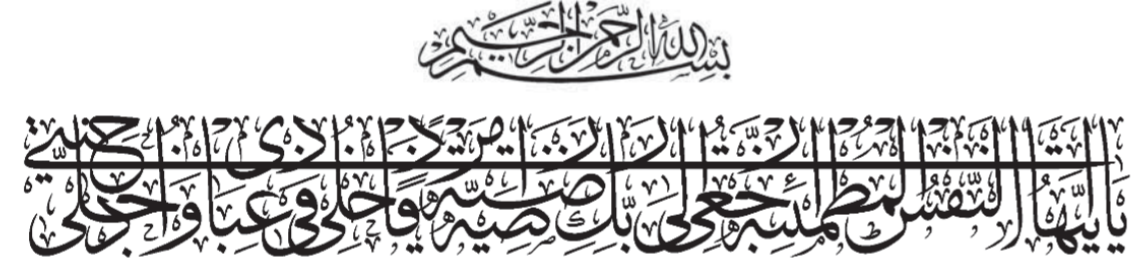 بسم الله الرحمن الرحيم
يا أيتها النفس المطمئنة ارجعي إلى ربك راضية مرضية فادخلي في عبادي وادخلي جنتي